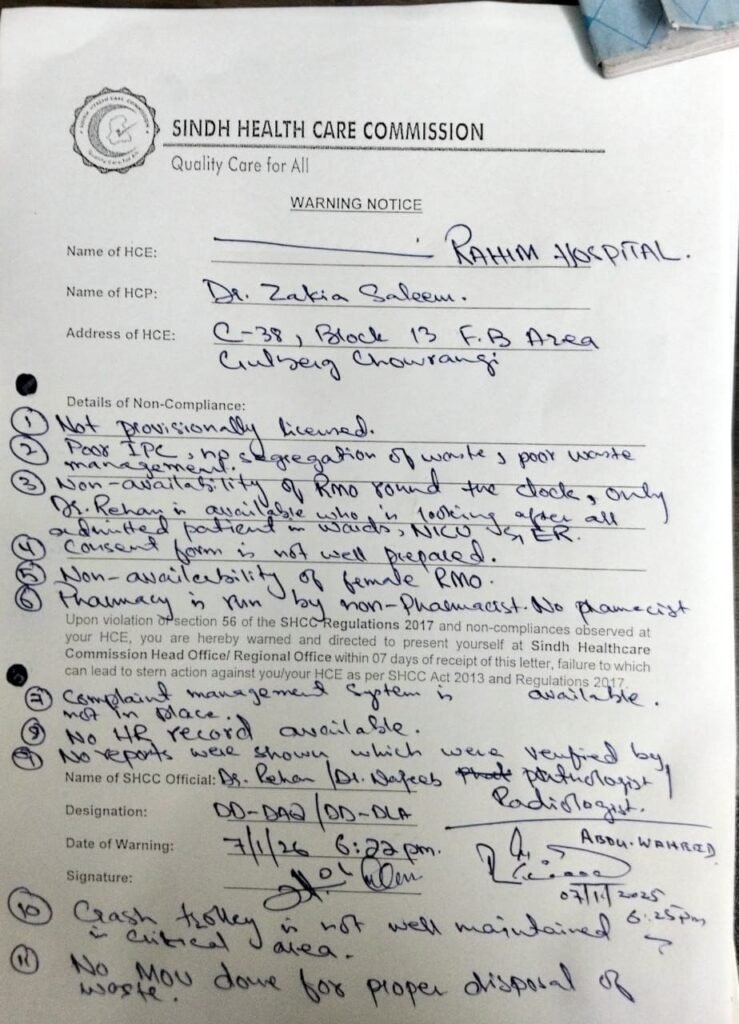 SINDH HEALTH CARE COMMISSION
Quality Care for All
WARNING NOTICE
Name of HCE: RAHIM HOSPITAL.
Name of HCP: Dr. Zakia Saleem.
Address of HCE: C-38, Block 13 F.B Area
Gulberg Chowrangi
Details of Non-Compliance:
① Not provisionally licensed.
② Poor IPC, no segregation of waste, poor waste
management.
③ Non-availability of RMO round the clock, only
Dr. Rehan is available who is looking after all
admitted patient in wards, NICU, ER.
④ Consent form is not well prepared.
⑤ Non-availability of female RMO.
⑥ Pharmacy is run by non-Pharmacist. No phamacist
Upon violation of section 56 of the SHCC Regulations 2017 and non-compliances observed at
your HCE, you are hereby warned and directed to present yourself at Sindh Healthcare
Commission Head Office/ Regional Office within 07 days of receipt of this letter, failure to which
can lead to stern action against you/your HCE as per SHCC Act 2013 and Regulations 2017.
available.
⑦ Complaint management system is
not in place.
⑧ No HR record available.
⑨ No reports were shown which were verified by
Name of SHCC Official: Dr. Rehan /Dr. Nafees pathologist/
Radiologist.
Designation: DD-DAQ/DD-DLA
Date of Warning: 7/1/26 6:22 pm.
ABDU-WAHEED
Signature:
07/1/2025
6:25pm
⑩ Crash trolley is not well maintained
in critical area.
⑪ No MOU done for proper disposal of
waste.